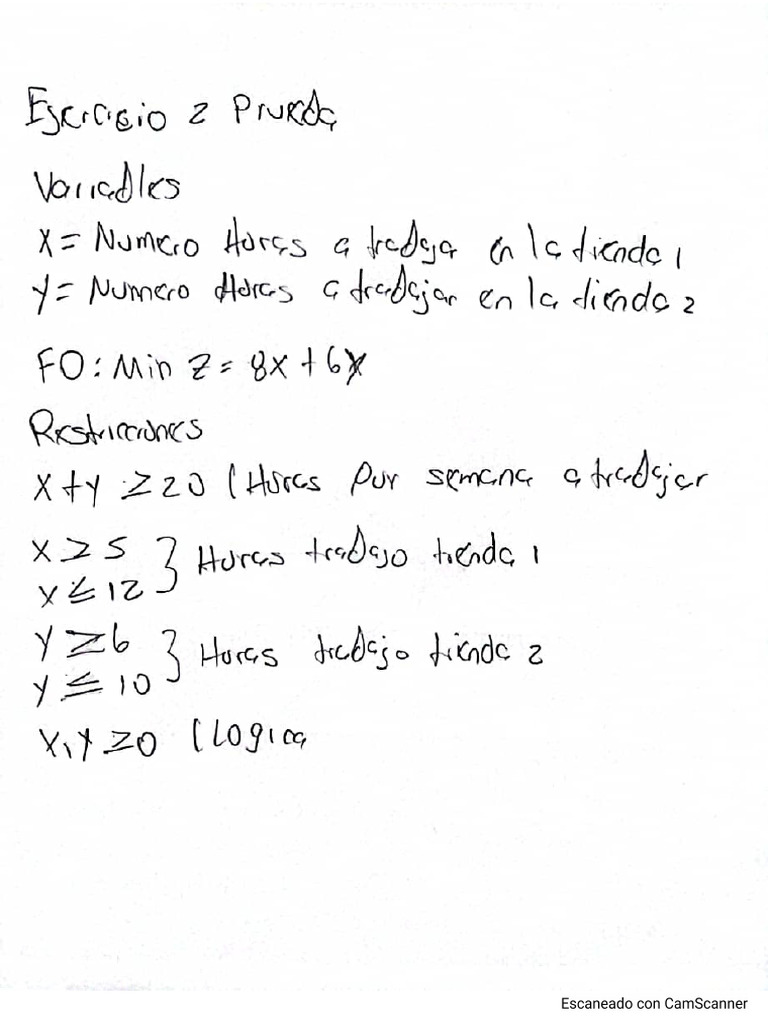 Ejercicio 2 Prueba
Variables
X = Numero Horas a trabaja en la tienda 1
Y = Numero Horas a trabajar en la tienda 2
FO: Min Z = 8X + 6Y
Restricciones
X + Y ≥ 20 (Horas por semana a trabajar
X ≥ 5 } Horas trabajo tienda 1
X ≤ 12
Y ≥ 6 } Horas trabajo tienda 2
Y ≤ 10
X, Y ≥ 0 (Logica
Escaneado con CamScanner